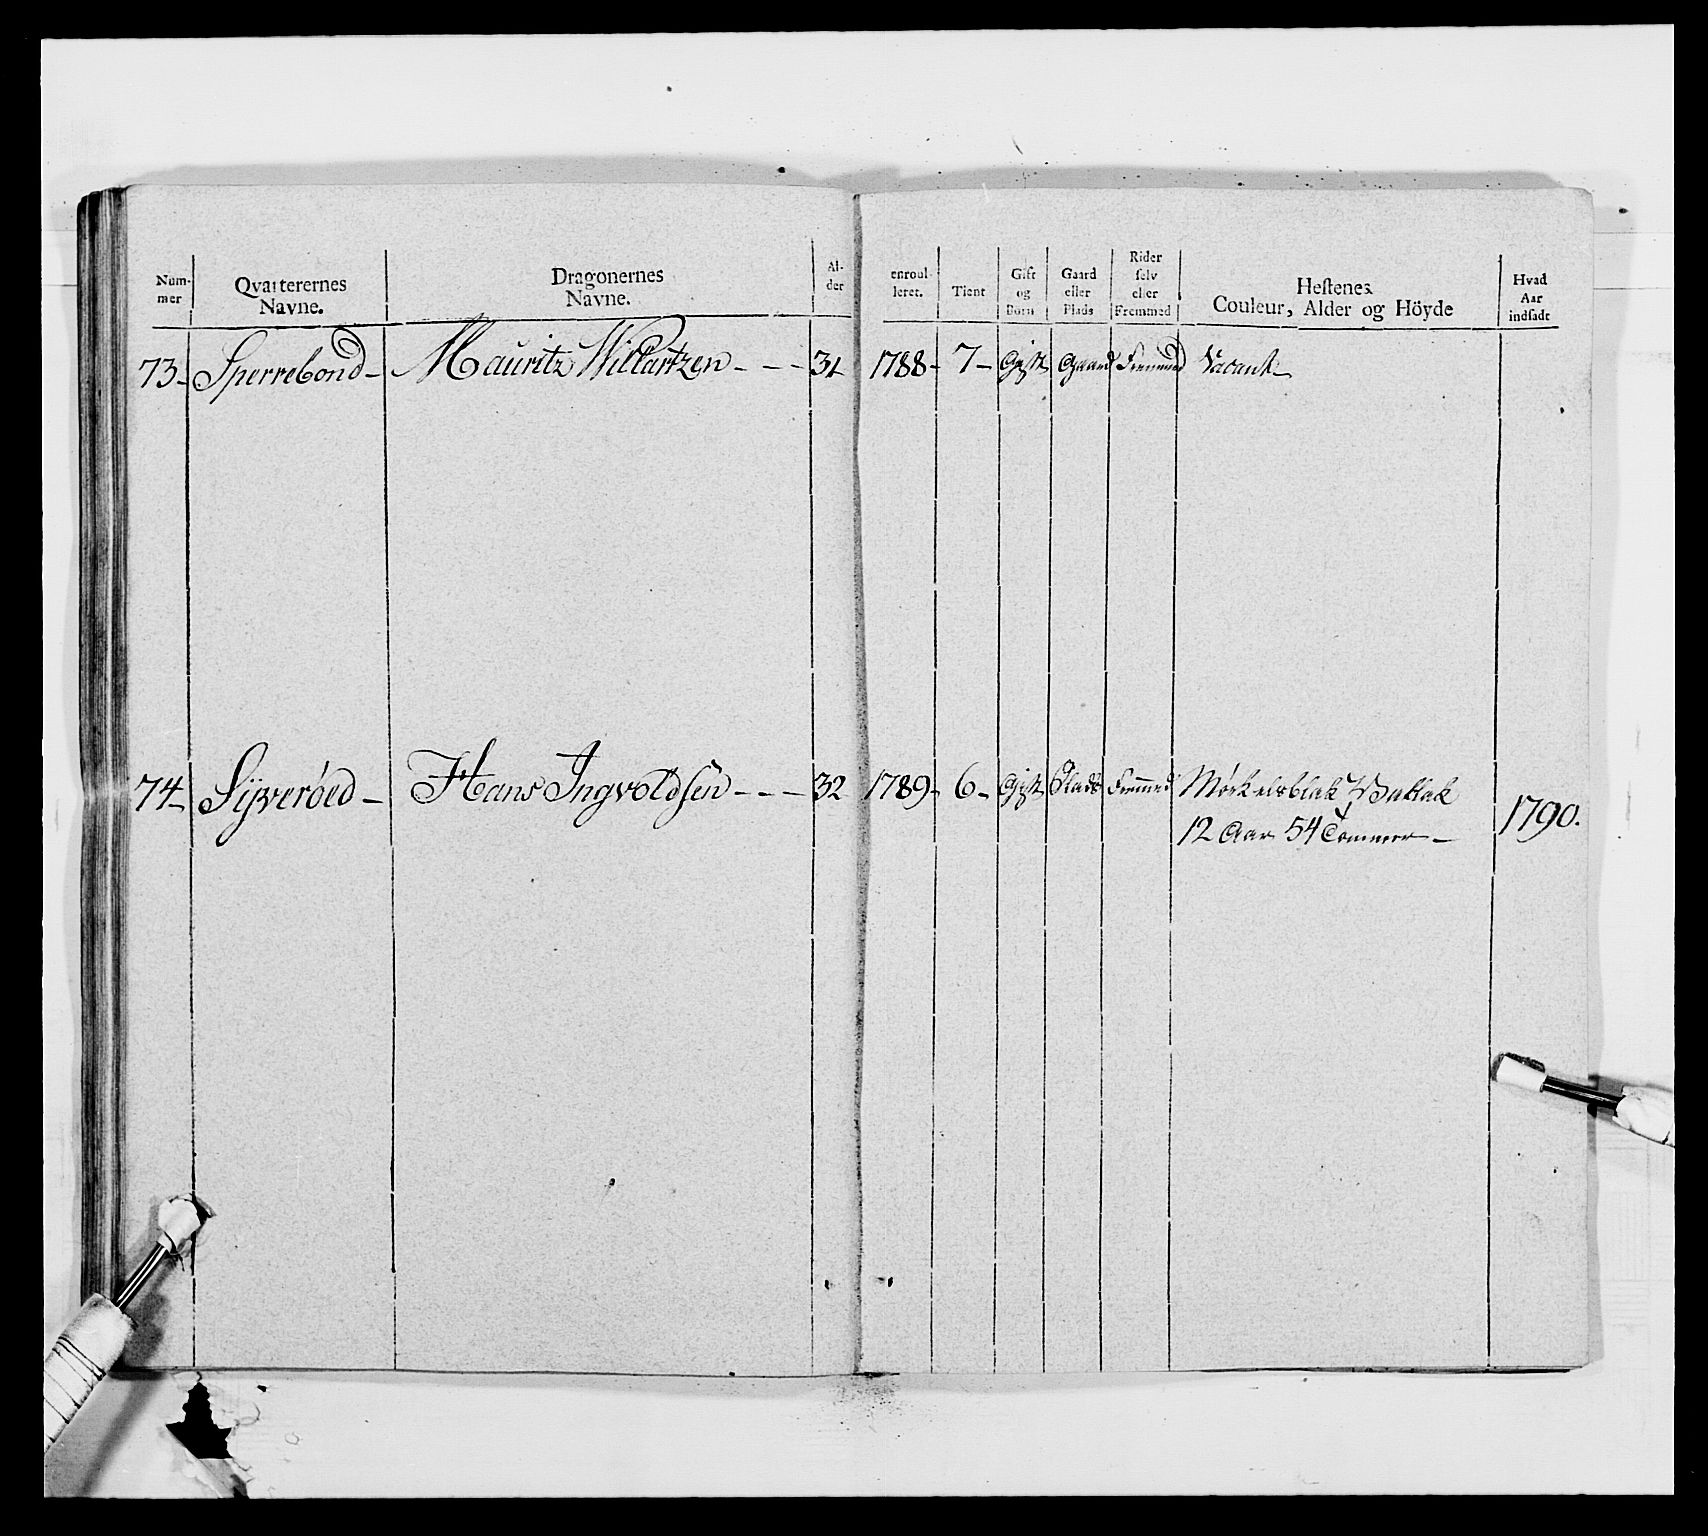 Num-
mer
Qvarterernes
Navne.
Dragonernes
Navne.
Al-
der
enroul-
leret.
Tient
Gift
og
Börn
Gaard
eller
Plads
Rider
selv
eller
Fremmed
Hestenes
Couleur, Alder og Höyde
Hvad
Aar
indsadt
73- Sperrebond- Mauritz Willartzen - - - 31 1788- 7- Gift Gaard Fremmed Vacant-
74- Sijverøed- Hans Ingvoldsen - - - 32 1789- 6- Gift Plads Fremmed Vallak
12 Aar 54 Tommer- 1790.